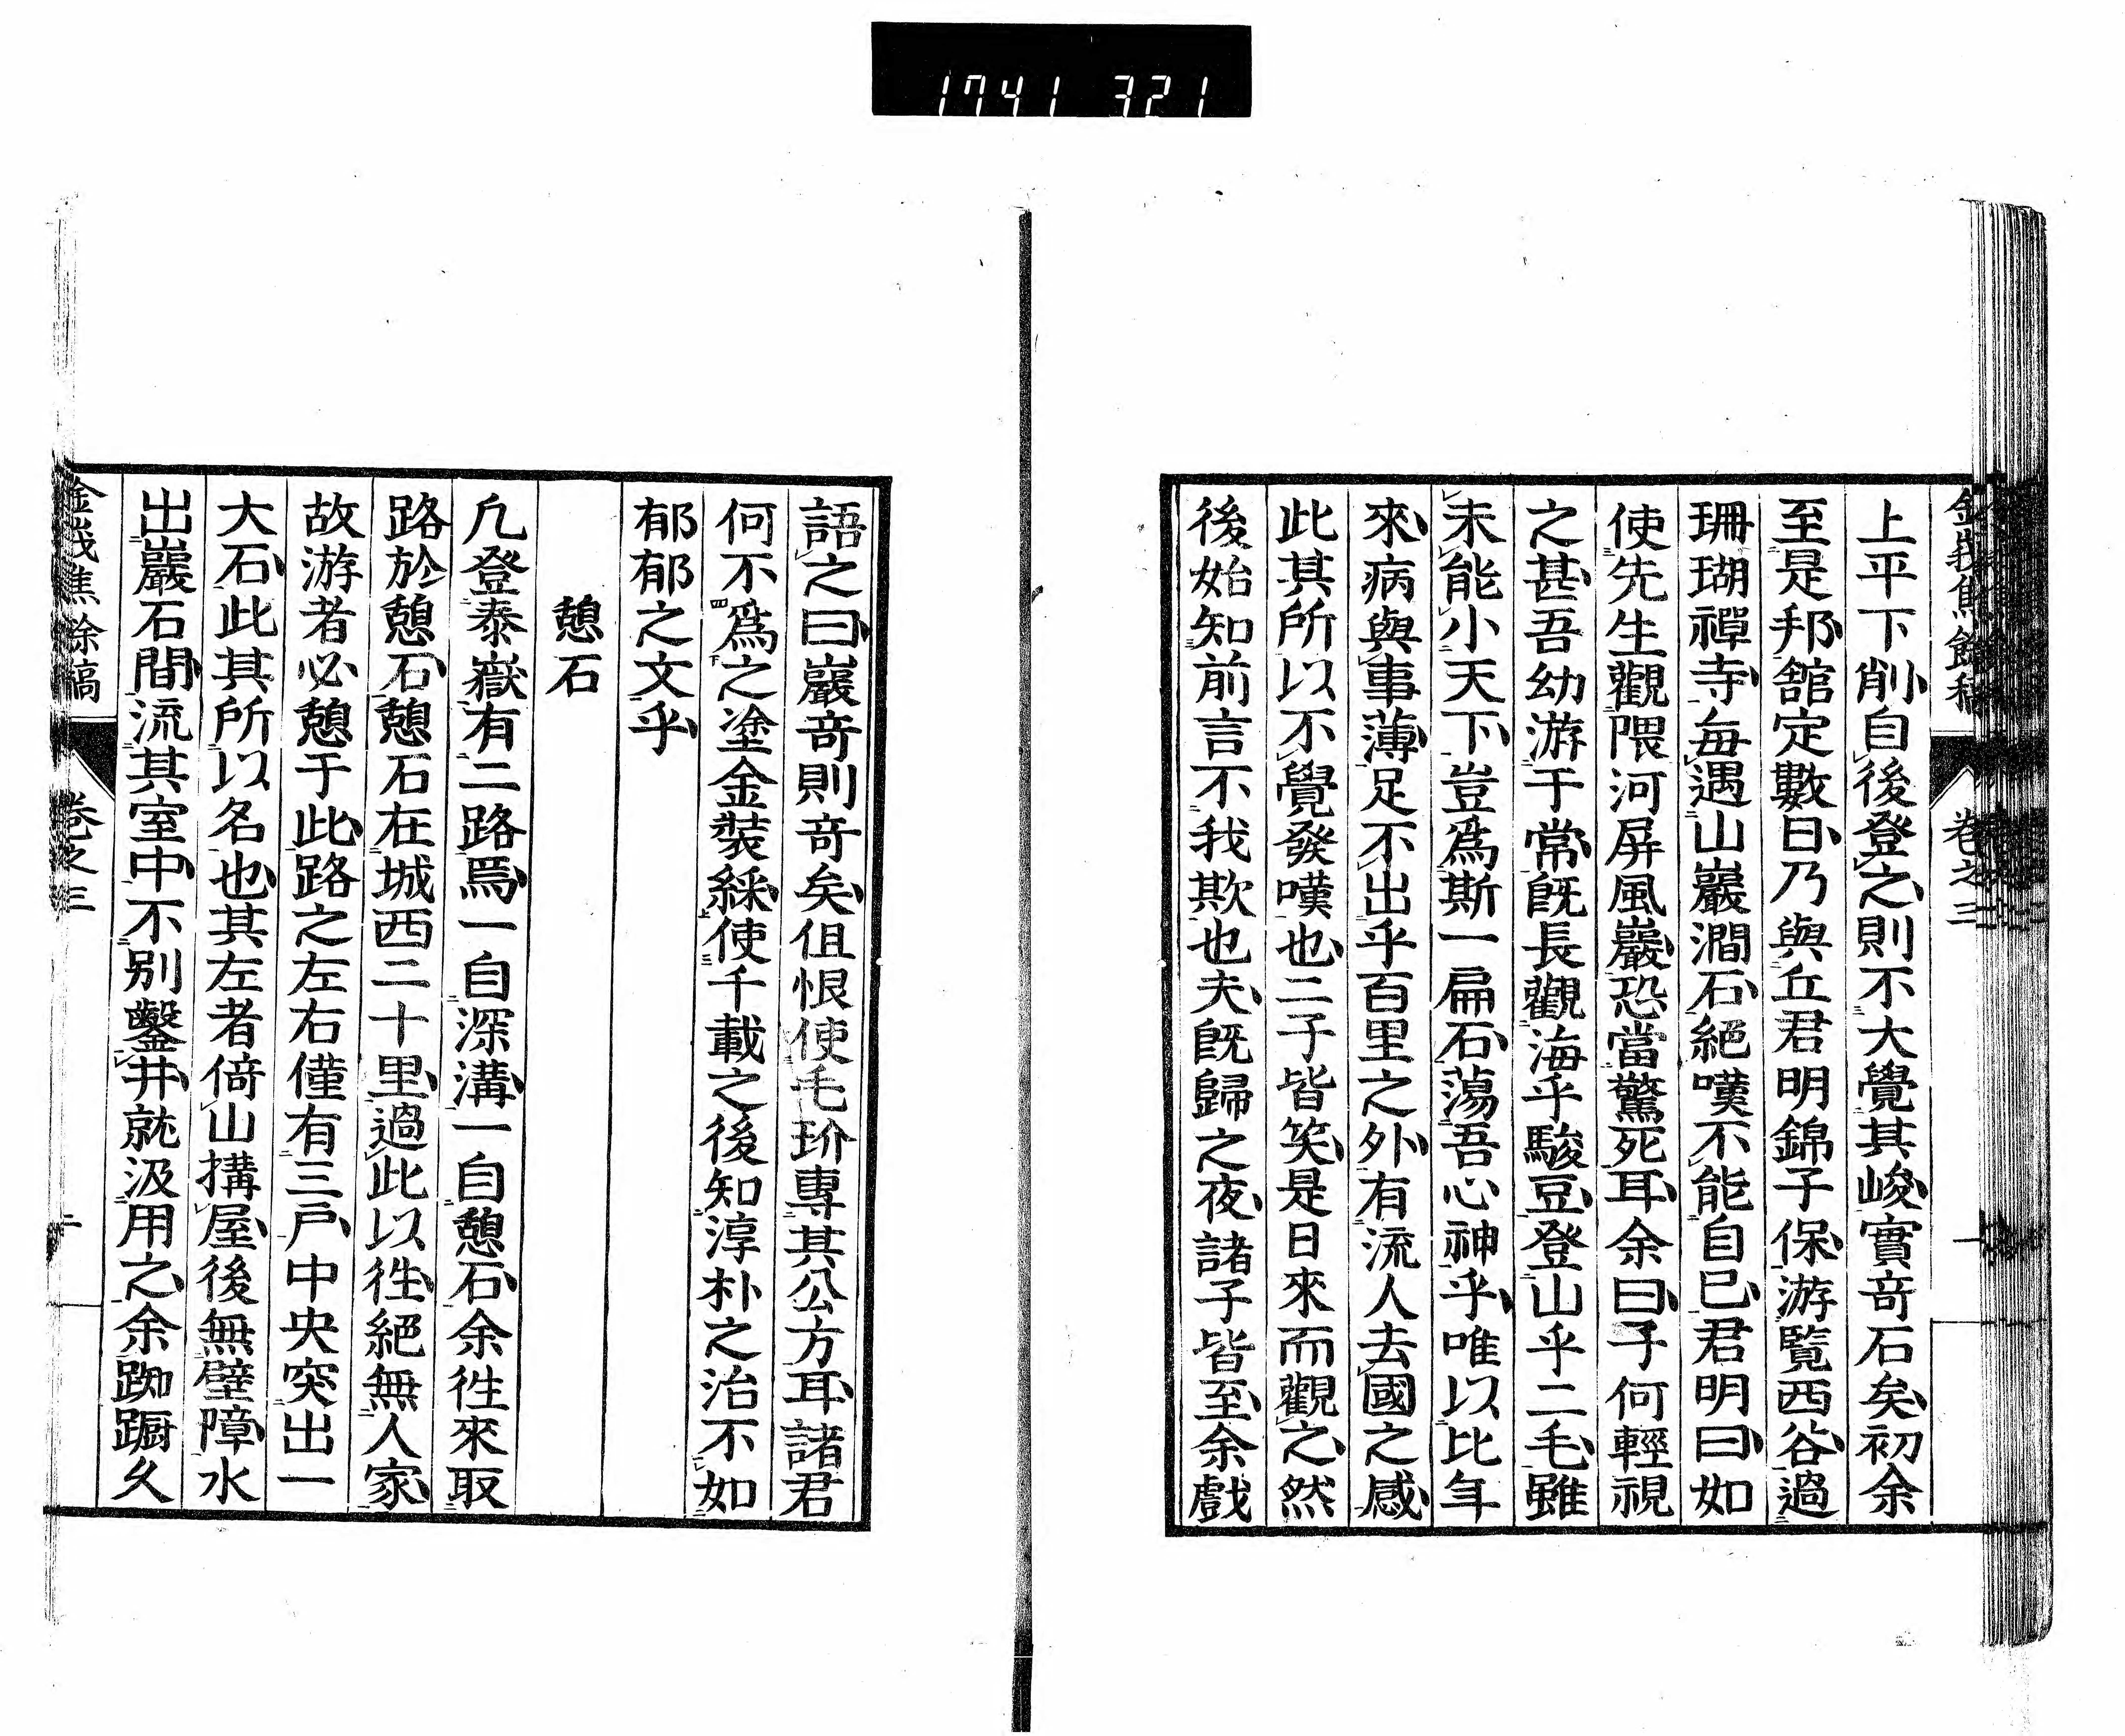 1741 321
上平下削自後登之則不大覺其峻實奇石矣初余
至是邦舘定數日乃與丘君明錦子保游覧西谷過
珊瑚禪寺毎遇山巖澗石絕嘆不能自已君明曰如
使先生觀隈河屏風巖恐當驚死耳余曰子何輕視
之甚吾幼游于常旣長觀海乎駿豆登山乎二毛雖
未能小天下豈爲斯一扁石蕩吾心神乎唯以比年
來病與事薄足不出乎百里之外有流人去國之感
此其所以不覺發嘆也二子皆笑是日來而觀之然
後始知前言不我欺也夫旣歸之夜諸子皆至余戲
語之曰巖奇則奇矣伹恨使毛玠專其公方耳諸君
何不爲之塗金裝綵使千載之後知淳朴之治不如
郁郁之文乎
憩石
凢登泰嶽有二路焉一自深溝一自憩石余徃來取
路於憩石憩石在城西二十里過此以徃絕無人家
故游者必憩于此路之左右僅有三戶中央突出一
大石此其所以名也其左者倚山搆屋後無壁障水
出巖石間流其室中不別鑿井就汲用之余踟蹰久
卷之三